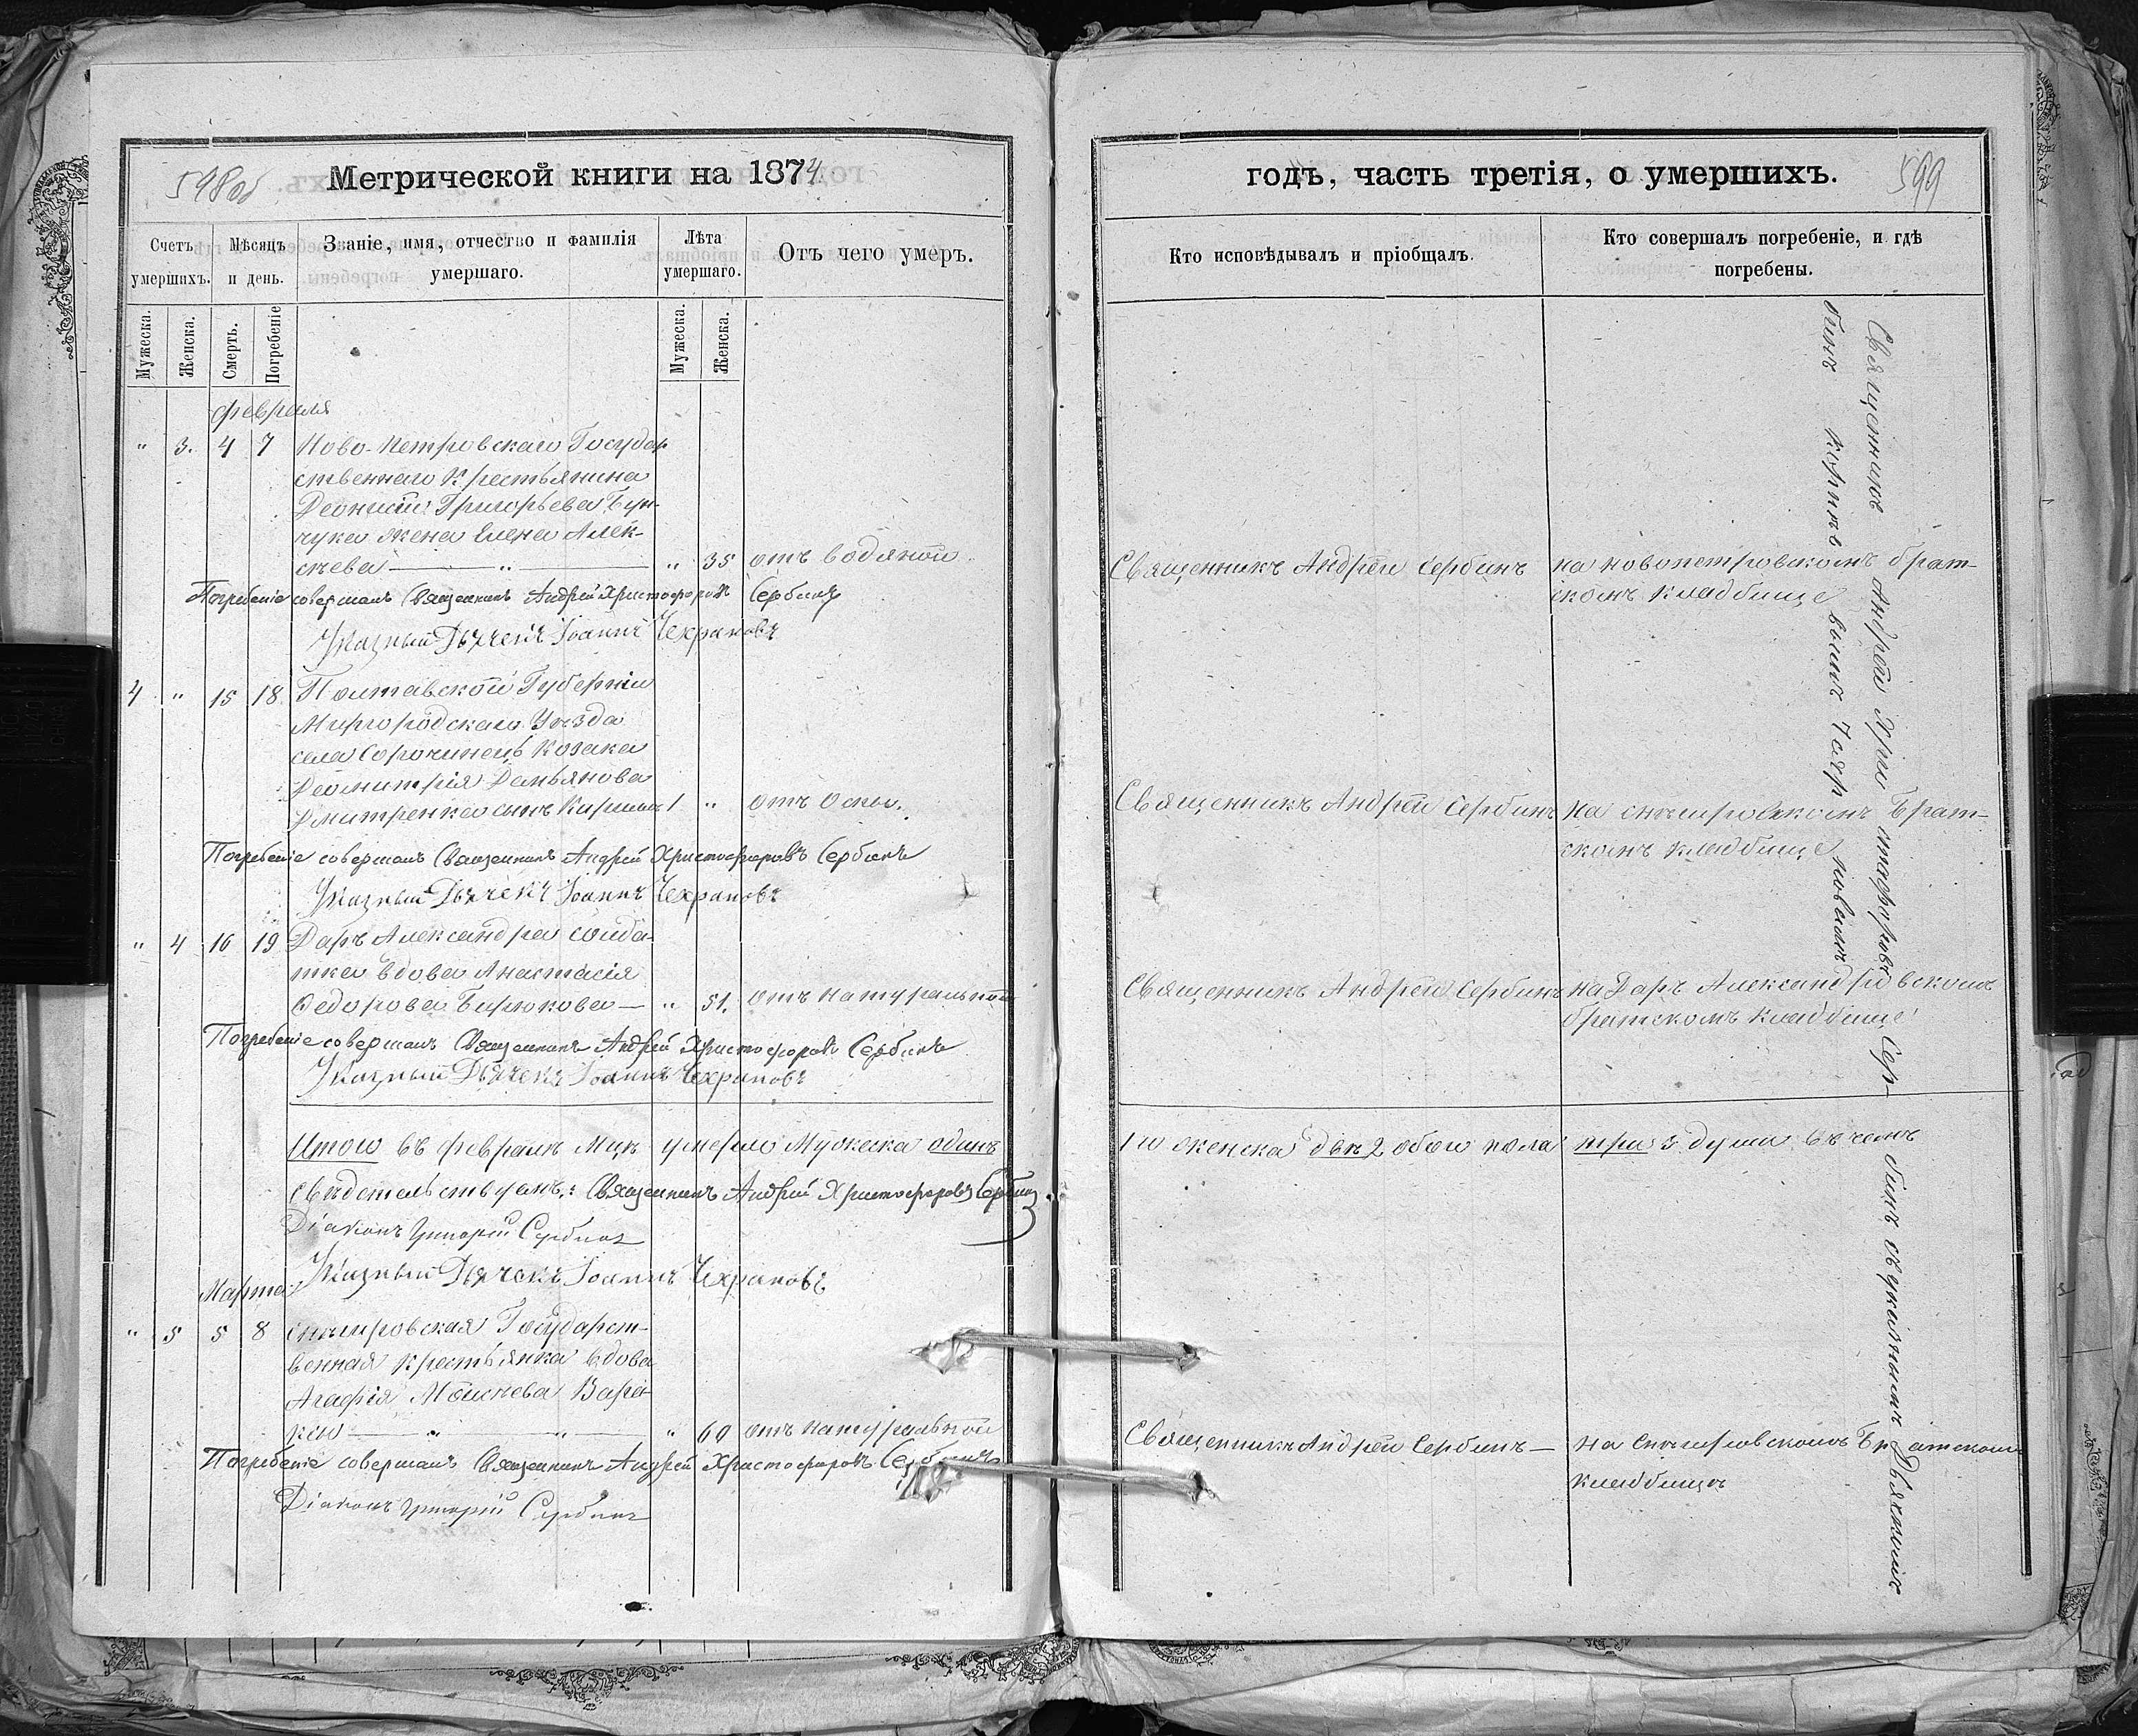 598об
Метрической книги на 1874
Счетъ умершихъ.
Мѣсяцъ и день.
Званіе, имя, отчество и фамилія умершаго.
Лѣта умершаго.
Отъ чего умеръ.
Мужеска.
Женска.
Смерть.
Погребеніе
Мужеска.
Женска.
февраля
" 3. 4 7 Ново-Петровскаго Государ
ственнаго Крестьянина
Григорьева
чука жена Елена Алек-
сѣева — " — " 35 отъ водяной
Погребеніе совершалъ Священникъ Андрей Христофоровъ Сербинъ
Указный Дьячекъ Іоаннъ Чехрановъ
4 " 15 18 Полтавской Губерніи
Миргородскаго Уѣзда
села Сорочинецъ Козака
Демьянова
Дмитренка сынъ 1 " отъ оспы.
Погребеніе совершалъ Священникъ Андрей Христофоровъ Сербинъ
Указный Дьячекъ Іоаннъ Чехрановъ
" 4 16 19 Даръ Александра солда-
тка вдова Анастасія
Ѳедорова Бирюкова — " 51. отъ натуральной
Погребеніе совершалъ Священникъ Андрей Христофоровъ Сербинъ
Указный Дьячекъ Іоаннъ Чехрановъ
Итого въ февралѣ Мцѣ умерло Мужеска одинъ
свидетельствуемъ: Священникъ Андрей Христофоровъ Сербинъ
Діаконъ Григорій Сербинъ
Указный Дьячекъ Іоаннъ Чехрановъ
Марта
" 5 5 8 Государст-
венная крестьянка вдова
Агафія Моисѣева
— " — " — " 60 отъ натуральной
Погребеніе совершалъ Священникъ Андрей Христофоровъ Сербинъ
Діаконъ Григорій Сербинъ
годъ, часть третія, о умершихъ.
599
Кто исповѣдывалъ и пріобщалъ.
Кто совершалъ погребеніе, и гдѣ погребены.
Священникъ Андрей Сербинъ на новопетровскомъ брат-
скомъ кладбище
Священникъ Андрей Сербинъ на Брат-
скомъ кладбище
Священникъ Андрей Сербинъ на Даръ Александровскомъ
братскомъ кладбище
1 и женска двѣ 2 обои пола три 3 души въ чемъ
Священникъ Андрей Сербинъ — на Братскомъ
кладбищѣ
Священникъ Андрей Христофоровъ Сер-
бинъ съ указнымъ Дьячкомъ